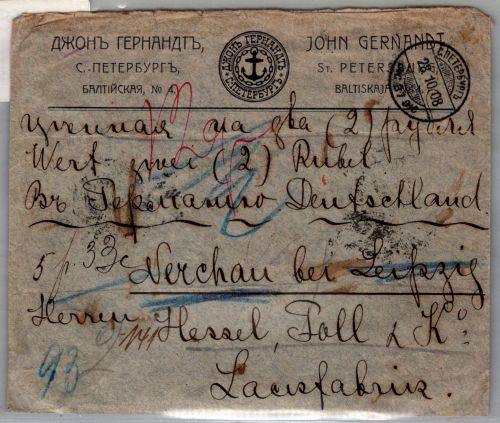 ДЖОНЪ ГЕРНАНДТЪ,
С.-ПЕТЕРБУРГЪ,
БАЛТІЙСКАЯ, № 4.
ДЖОНЪ ГЕРНАНДТЪ
С.ПЕТЕРБУРГЪ
JOHN GERNANDT
ST. PETERS
BALTISKAJA
28.10.08
цѣнная на два (2) рубля
Wert zwei (2) Rubel
Въ Германію Deutschland
5 р. 33
Nerchau bei Leipzig
Herren Hessel, Toll & Kº
93
Lackfabrik.